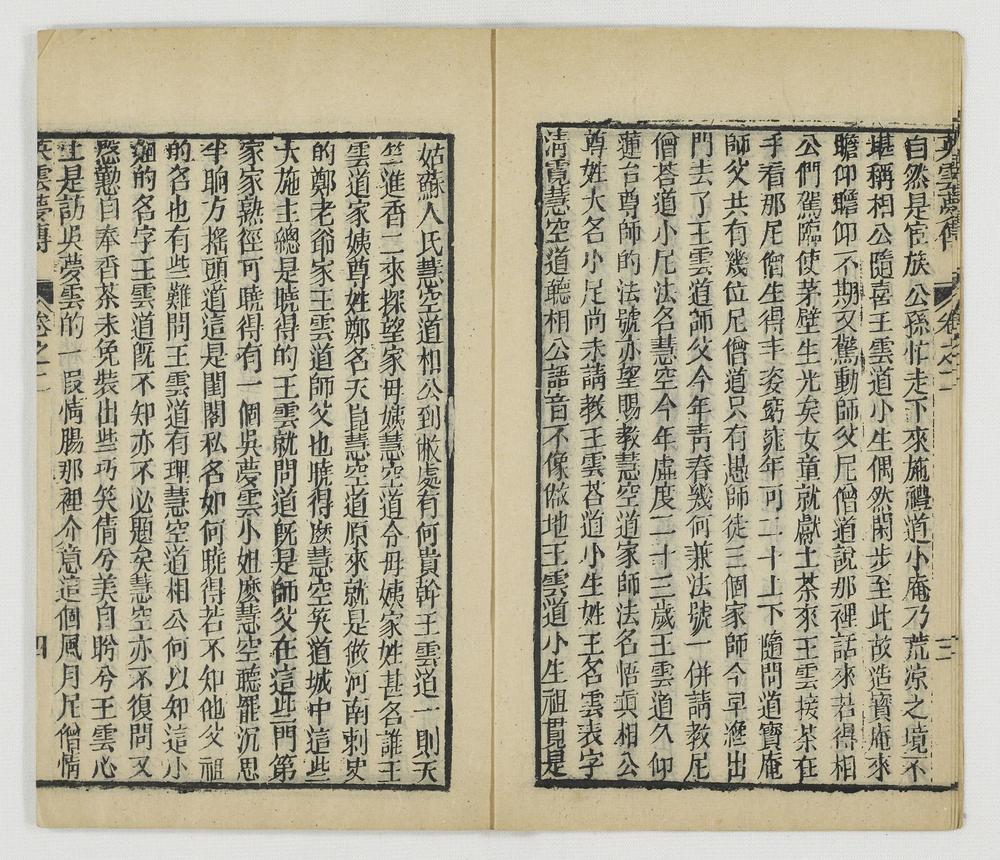 英雲夢傳 卷之二 三
自然是宦族公孫忙走下來施禮道小庵乃荒凉之境不
堪稱相公隨喜王雲道小生偶然閑步至此故造寳庵來
瞻仰瞻仰不期又驚動師父尼僧道說那裡話來若得相
公們駕臨使茅壁生光矣女童就獻上茶來王雲接茶在
手看那尼僧生得丰姿窈窕年可二十上下隨問道寳庵
師父共有幾位尼僧道只有愚師徒三個家師今早纔出
門去了王雲道師父今年靑春幾何兼法號一併請教尼
僧荅道小尼法名慧空今年虛度二十三歲王雲道久仰
蓮台尊師的法號亦望賜教慧空道家師法名悟眞相公
尊姓大名小尼尚未請教王雲荅道小生姓王名雲表字
淸霓慧空道聽相公語音不像倣地王雲道小生祖貫是
姑蘇人氏慧空道相公到敝處有何貴幹王雲道一則天
竺進香二來探望家母姨慧空道令母姨家姓甚名誰王
雲道家姨尊姓鄭名天昆慧空道原來就是做河南刺史
的鄭老爺家王雲道師父也曉得麽慧空笑道城中這些
大施主總是曉得的王雲就問道旣是師父在這些門第
家家熟徑可曉得有一個吳夢雲小姐麽慧空聽罷沉思
半晌方搖頭道這是閨閣私名如何曉得若不知他父祖
的名也有些難問王雲道有理慧空道相公何以知這小
姐的名字王雲道旣不知亦不必題矣慧空亦不復問又
慇懃自奉香茶未免裝出些巧笑倩兮美目盼兮王雲心
上是訪吳夢雲的一叚情腸那裡介意這個風月尼僧情
英雲夢傳 卷之二 四